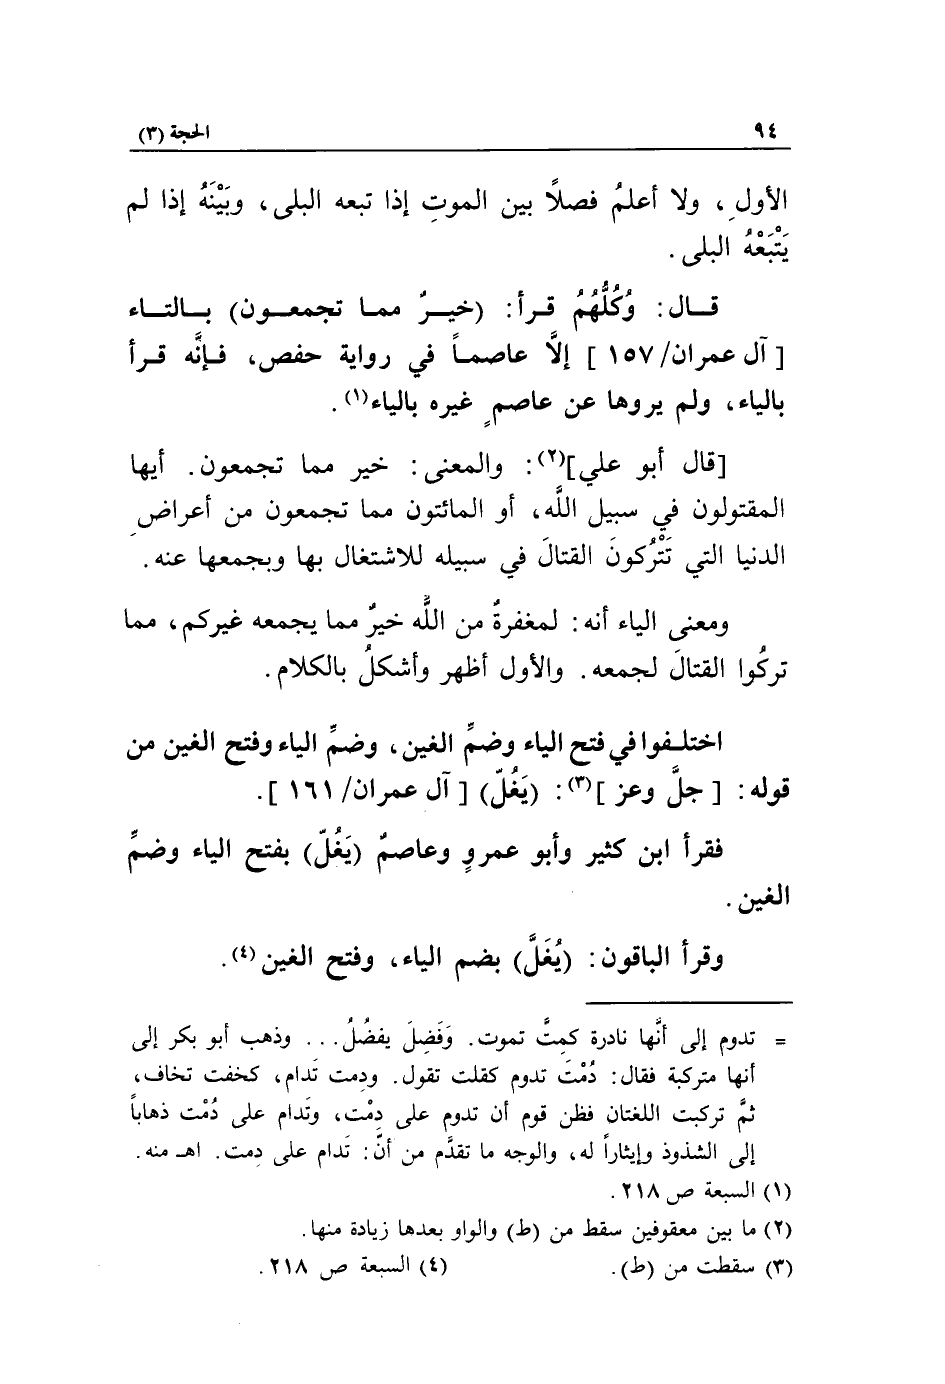 ٩٤
الحجة (٣)
الأولِ، ولا أعلمُ فصلًا بين الموتِ إذا تبعه البلى، وبَيْنَهُ إذا لم
يَتْبَعْهُ البلى.
قال: وكُلُّهُمُ قرأ: (خيرٌ مما تجمعون) بالتاء
[آل عمران/١٥٧] إلَّا عاصماً في رواية حفص، فإنَّه قرأ
بالياء، ولم يروها عن عاصمٍ غيره بالياء(١).
[قال أبو علي](٢): والمعنى: خير مما تجمعون. أيها
المقتولون في سبيل اللَّه، أو المائتون مما تجمعون من أعراضِ
الدنيا التي تَتْرُكونَ القتالَ في سبيله للاشتغال بها وبجمعها عنه.
ومعنى الياء أنه: لمغفرةٌ من اللَّه خيرٌ مما يجمعه غيركم، مما
تركُوا القتالَ لجمعه. والأول أظهر وأشكلُ بالكلام.
اختلفوا في فتح الياء وضمِّ الغين، وضمِّ الياء وفتح الغين من
قوله: [جلَّ وعز](٣): (يَغُلّ) [آل عمران/١٦١].
فقرأ ابن كثير وأبو عمروٍ وعاصمٌ (يَغُلّ) بفتح الياء وضمِّ
الغين.
وقرأ الباقون: (يُغَلَّ) بضم الياء، وفتح الغين(٤).
= تدوم إلى أنَّها نادرة كمتَّ تموت. وَفَضِلَ يفضُلُ... وذهب أبو بكر إلى
أنها متركبة فقال: دُمْتَ تدوم كقلت تقول. ودمت تَدام، كخفت تخاف،
ثمَّ تركبت اللغتان فظن قوم أن تدوم على دِمْت، وتَدام على دُمْت ذهاباً
إلى الشذوذ وإيثاراً له، والوجه ما تقدَّم من أنّ: تَدام على دِمت. اهـ منه.
(١) السبعة ص ٢١٨.
(٢) ما بين معقوفين سقط من (ط) والواو بعدها زيادة منها.
(٣) سقطت من (ط). (٤) السبعة ص ٢١٨.